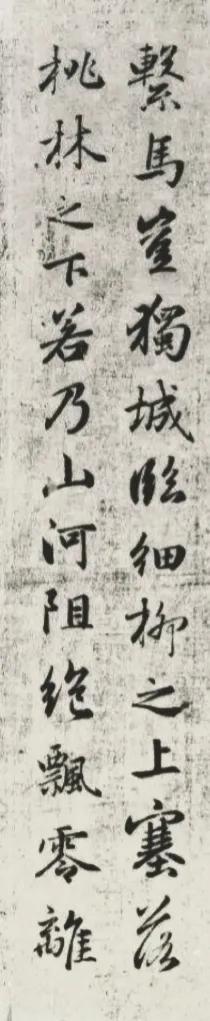 繫馬豈獨城臨細柳之上塞落
桃林之下若乃山河阻絕飄零離